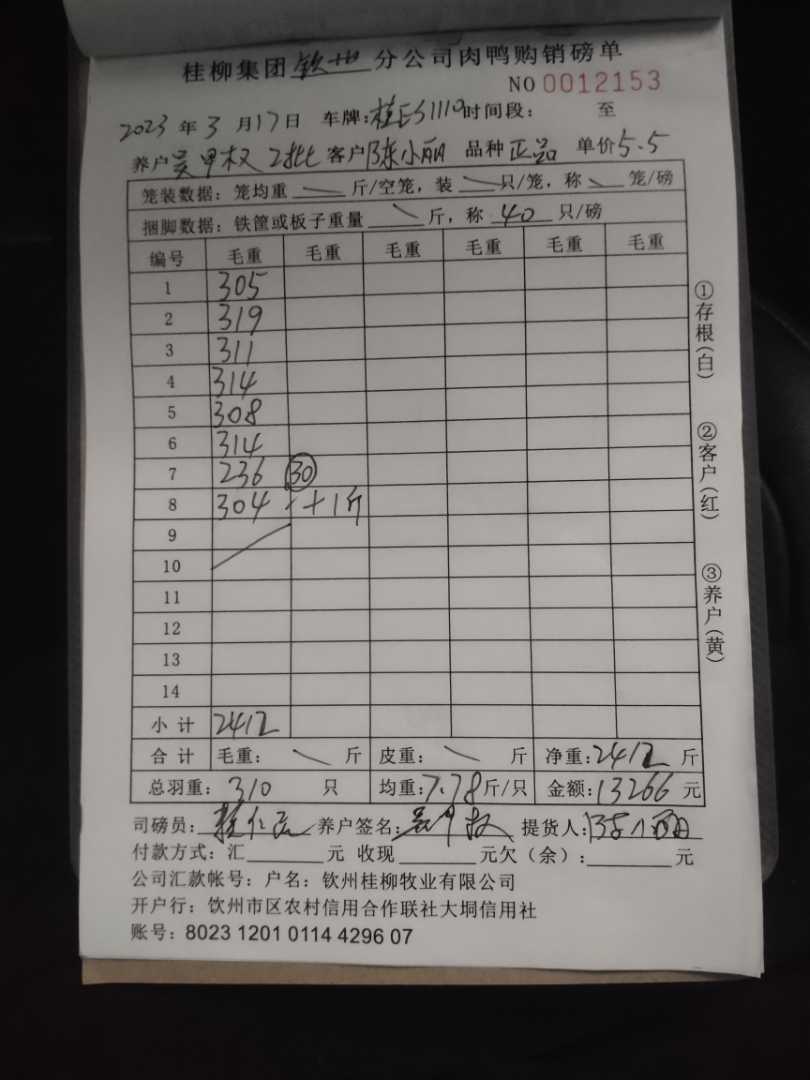 桂柳集团钦州分公司肉鸭购销磅单
NO 0012153
2023 年 3 月 17 日 车牌:桂E51110 时间段: 至
养户 吴甲权 2批 客户 陈小丽 品种 正品 单价 5.5
笼装数据: 笼均重 斤/空笼, 装 只/笼, 称 笼/磅
捆脚数据: 铁筐或板子重量 斤, 称 40 只/磅
编号 毛重 毛重 毛重 毛重 毛重
1 305
2 319
3 311
4 314
5 308
6 314
7 236 30
8 304 +1斤
9
10
11
12
13
14
小计 2412
合计 毛重: 斤 皮重: 斤 净重: 2412 斤
总羽重: 310 只 均重: 7.78 斤/只 金额: 13266 元
司磅员: 养户签名: 吴甲权 提货人: 陈小丽
付款方式: 汇 元 收现 元欠(余): 元
公司汇款帐号: 户名: 钦州桂柳牧业有限公司
开户行: 钦州市区农村信用合作联社大垌信用社
账号: 8023 1201 0114 4296 07
①存根(白)
②客户(红)
③养户(黄)